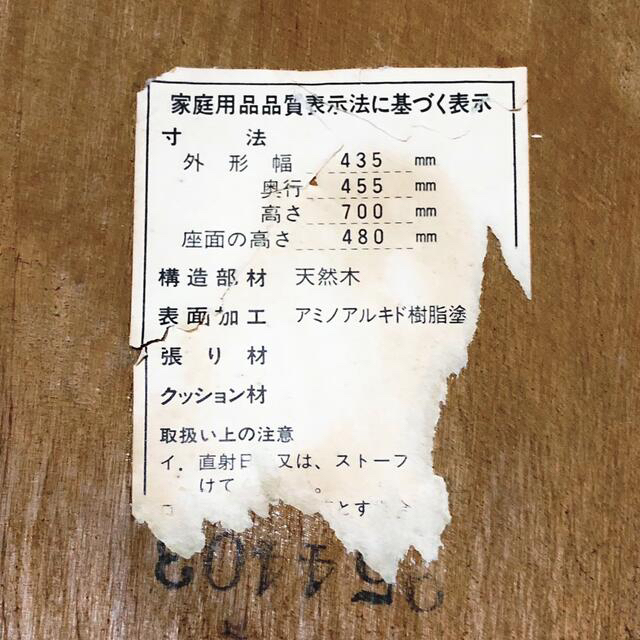 家庭用品品質表示法に基づく表示
寸法
外形幅 435 mm
奥行 455 mm
高さ 700 mm
座面の高さ 480 mm
構造部材 天然木
表面加工 アミノアルキド樹脂塗
張り材
クッション材
取扱い上の注意
イ. 直射日 又は、ストーブ
けて 。
とす